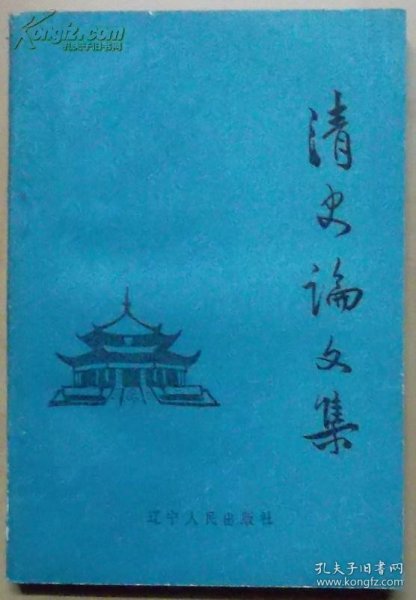 Kongfz.com
孔夫子旧书网
清史論文集
辽宁人民出版社
孔夫子旧书网
www.kongfz.com